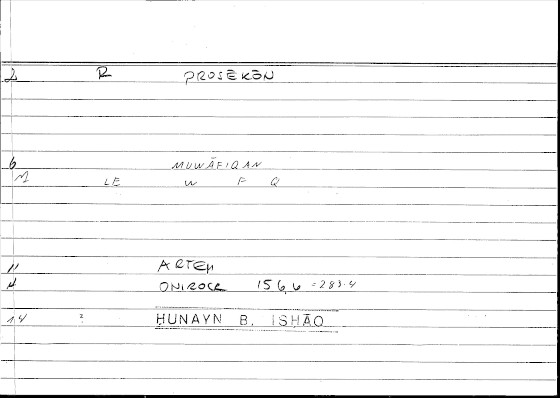 2 R PROSĒKŌN
6 MUWĀFIQAN
M LE W F Q
11 ARTEM
4 ONIROCR 156,6 = 283.4
14 : ḤUNAYN B. ISḤĀQ